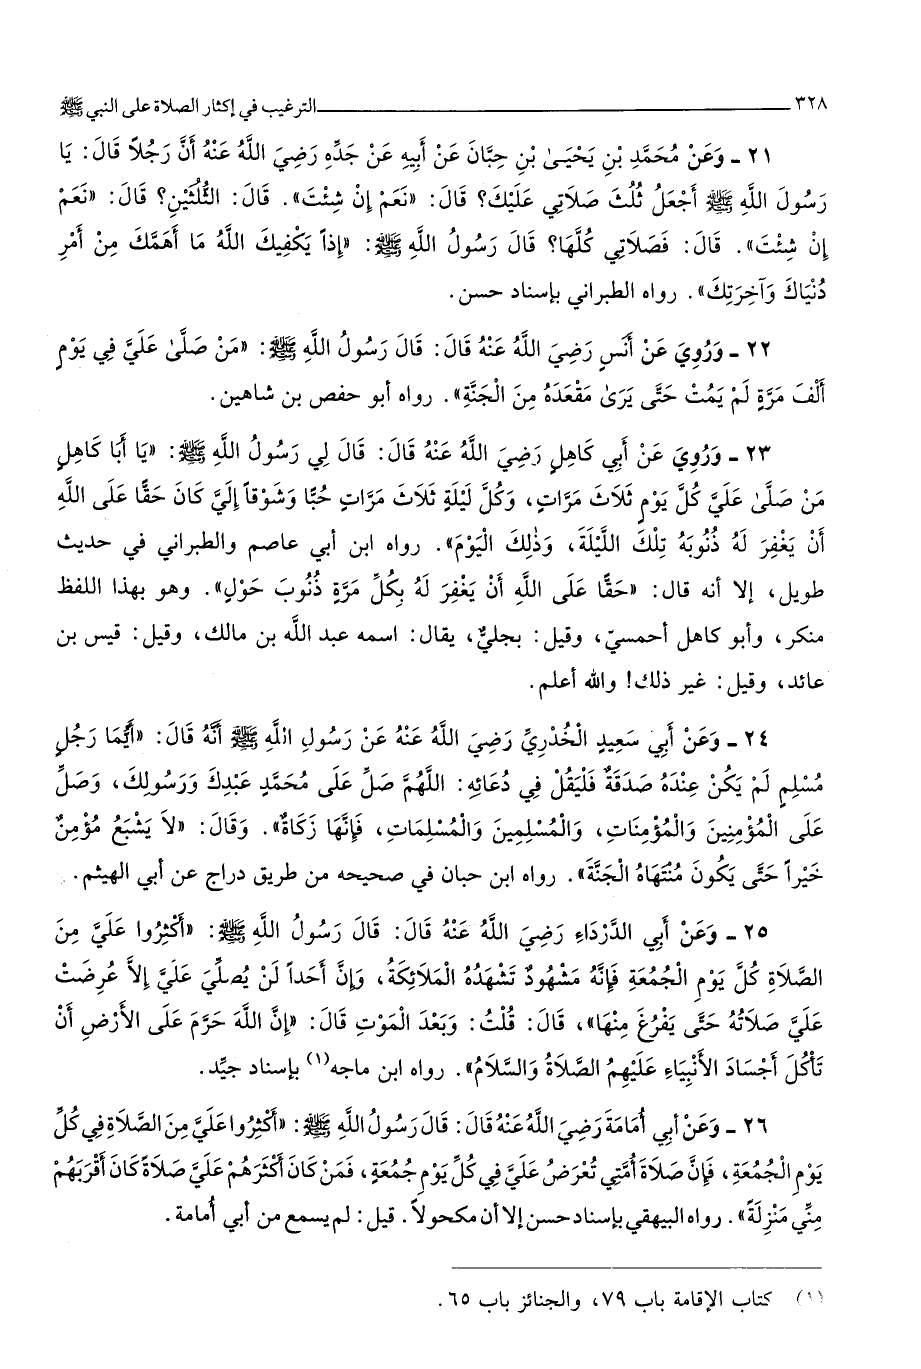 ٣٢٨ ـــــــــــــــــــــــــ الترغيب في إكثار الصلاة على النبي ﷺ
٢١ ـ وَعَنْ مُحَمَّدِ بْنِ يَحْيَىٰ بْنِ حِبَّانَ عَنْ أَبِيهِ عَنْ جَدِّهِ رَضِيَ اللَّهُ عَنْهُ أَنَّ رَجُلاً قَالَ: يَا
رَسُولَ اللَّهِ ﷺ أَجْعَلُ ثُلُثَ صَلَاتِي عَلَيْكَ؟ قَالَ: «نَعَمْ إِنْ شِئْتَ». قَالَ: الثُّلُثَيْنِ؟ قَالَ: «نَعَمْ
إِنْ شِئْتَ». قَالَ: فَصَلَاتِي كُلَّهَا؟ قَالَ رَسُولُ اللَّهِ ﷺ: «إِذاً يَكْفِيكَ اللَّهُ مَا أَهَمَّكَ مِنْ أَمْرِ
دُنْيَاكَ وَآخِرَتِكَ». رواه الطبراني بإسناد حسن.
٢٢ ـ وَرُوِيَ عَنْ أَنَسٍ رَضِيَ اللَّهُ عَنْهُ قَالَ: قَالَ رَسُولُ اللَّهِ ﷺ: «مَنْ صَلَّىٰ عَلَيَّ فِي يَوْمٍ
أَلْفَ مَرَّةٍ لَمْ يَمُتْ حَتَّى يَرَىٰ مَقْعَدَهُ مِنَ الْجَنَّةِ». رواه أبو حفص بن شاهين.
٢٣ ـ وَرُوِيَ عَنْ أَبِي كَاهِلٍ رَضِيَ اللَّهُ عَنْهُ قَالَ: قَالَ لِي رَسُولُ اللَّهِ ﷺ: «يَا أَبَا كَاهِلٍ
مَنْ صَلَّىٰ عَلَيَّ كُلَّ يَوْمٍ ثَلَاثَ مَرَّاتٍ، وَكُلَّ لَيْلَةٍ ثَلَاثَ مَرَّاتٍ حُبًّا وَشَوْقاً إِلَيَّ كَانَ حَقًّا عَلَى اللَّهِ
أَنْ يَغْفِرَ لَهُ ذُنُوبَهُ تِلْكَ اللَّيْلَةَ، وَذٰلِكَ الْيَوْمَ». رواه ابن أبي عاصم والطبراني في حديث
طويل، إلا أنه قال: «حَقًّا عَلَى اللَّهِ أَنْ يَغْفِرَ لَهُ بِكُلِّ مَرَّةٍ ذُنُوبَ حَوْلٍ». وهو بهذا اللفظ
منكر، وأبو كاهل أحمسيّ، وقيل: بجليٌّ، يقال: اسمه عبد اللَّه بن مالك، وقيل: قيس بن
عائد، وقيل: غير ذلك! والله أعلم.
٢٤ ـ وَعَنْ أَبِي سَعِيدٍ الْخُدْرِيِّ رَضِيَ اللَّهُ عَنْهُ عَنْ رَسُولِ اللَّهِ ﷺ أَنَّهُ قَالَ: «أَيُّمَا رَجُلٍ
مُسْلِمٍ لَمْ يَكُنْ عِنْدَهُ صَدَقَةٌ فَلْيَقُلْ فِي دُعَائِهِ: اللَّهُمَّ صَلِّ عَلَى مُحَمَّدٍ عَبْدِكَ وَرَسُولِكَ، وَصَلِّ
عَلَى الْمُؤْمِنِينَ وَالْمُؤْمِنَاتِ، وَالْمُسْلِمِينَ وَالْمُسْلِمَاتِ، فَإِنَّهَا زَكَاةٌ». وَقَالَ: «لاَ يَشْبَعُ مُؤْمِنٌ
خَيْراً حَتَّى يَكُونَ مُنْتَهَاهُ الْجَنَّةَ». رواه ابن حبان في صحيحه من طريق دراج عن أبي الهيثم.
٢٥ ـ وَعَنْ أَبِي الدَّرْدَاءِ رَضِيَ اللَّهُ عَنْهُ قَالَ: قَالَ رَسُولُ اللَّهِ ﷺ: «أَكْثِرُوا عَلَيَّ مِنَ
الصَّلَاةِ كُلَّ يَوْمِ الْجُمُعَةِ فَإِنَّهُ مَشْهُودٌ تَشْهَدُهُ الْمَلَائِكَةُ، وَإِنَّ أَحَداً لَنْ يُصَلِّيَ عَلَيَّ إِلاَّ عُرِضَتْ
عَلَيَّ صَلَاتُهُ حَتَّى يَفْرُغَ مِنْهَا»، قَالَ: قُلْتُ: وَبَعْدَ الْمَوْتِ قَالَ: «إِنَّ اللَّهَ حَرَّمَ عَلَى الأَرْضِ أَنْ
تَأْكُلَ أَجْسَادَ الأَنْبِيَاءِ عَلَيْهِمُ الصَّلَاةُ وَالسَّلَامُ». رواه ابن ماجه(١) بإسناد جيِّد.
٢٦ ـ وَعَنْ أَبِي أُمَامَةَ رَضِيَ اللَّهُ عَنْهُ قَالَ: قَالَ رَسُولُ اللَّهِ ﷺ: «أَكْثِرُوا عَلَيَّ مِنَ الصَّلَاةِ فِي كُلِّ
يَوْمِ الْجُمُعَةِ، فَإِنَّ صَلَاةَ أُمَّتِي تُعْرَضُ عَلَيَّ فِي كُلِّ يَوْمِ جُمُعَةٍ، فَمَنْ كَانَ أَكْثَرَهُمْ عَلَيَّ صَلَاةً كَانَ أَقْرَبَهُمْ
مِنِّي مَنْزِلَةً». رواه البيهقي بإسناد حسن إلا أن مكحولاً. قيل: لم يسمع من أبي أُمامة.
(١) كتاب الإقامة باب ٧٩، والجنائز باب ٦٥.